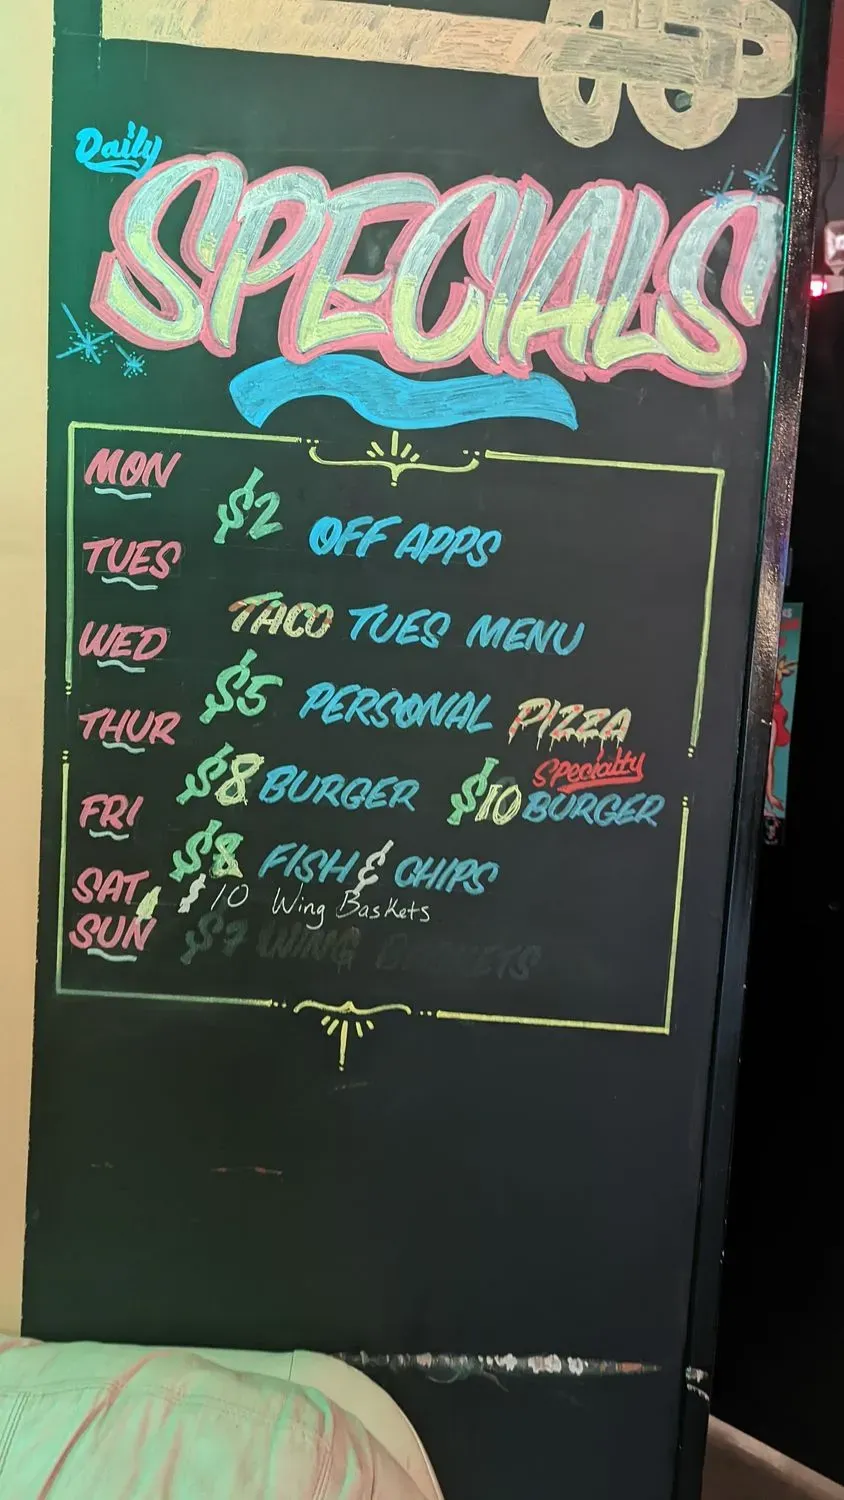 Daily
SPECIALS
MON
$2 OFF APPS
TUES
TACO TUES MENU
WED
$5 PERSONAL PIZZA
THUR
$8 BURGER $10 Specialty BURGER
FRI
$8 FISH & CHIPS
SAT &
$10 Wing Baskets
SUN
$7 WING BASKETS